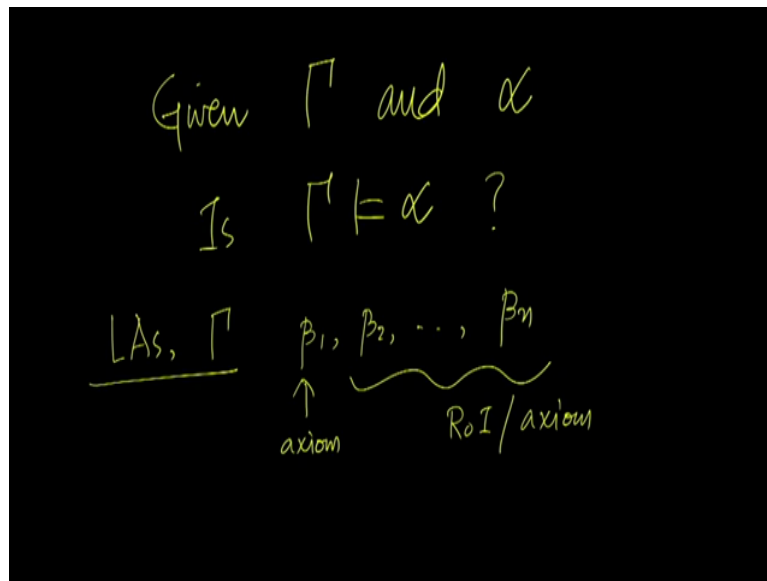 Given Γ and α
Is Γ ⊨ α ?
LAs, Γ β₁, β₂, ..., βₙ
↑
axiom RoI / axiom